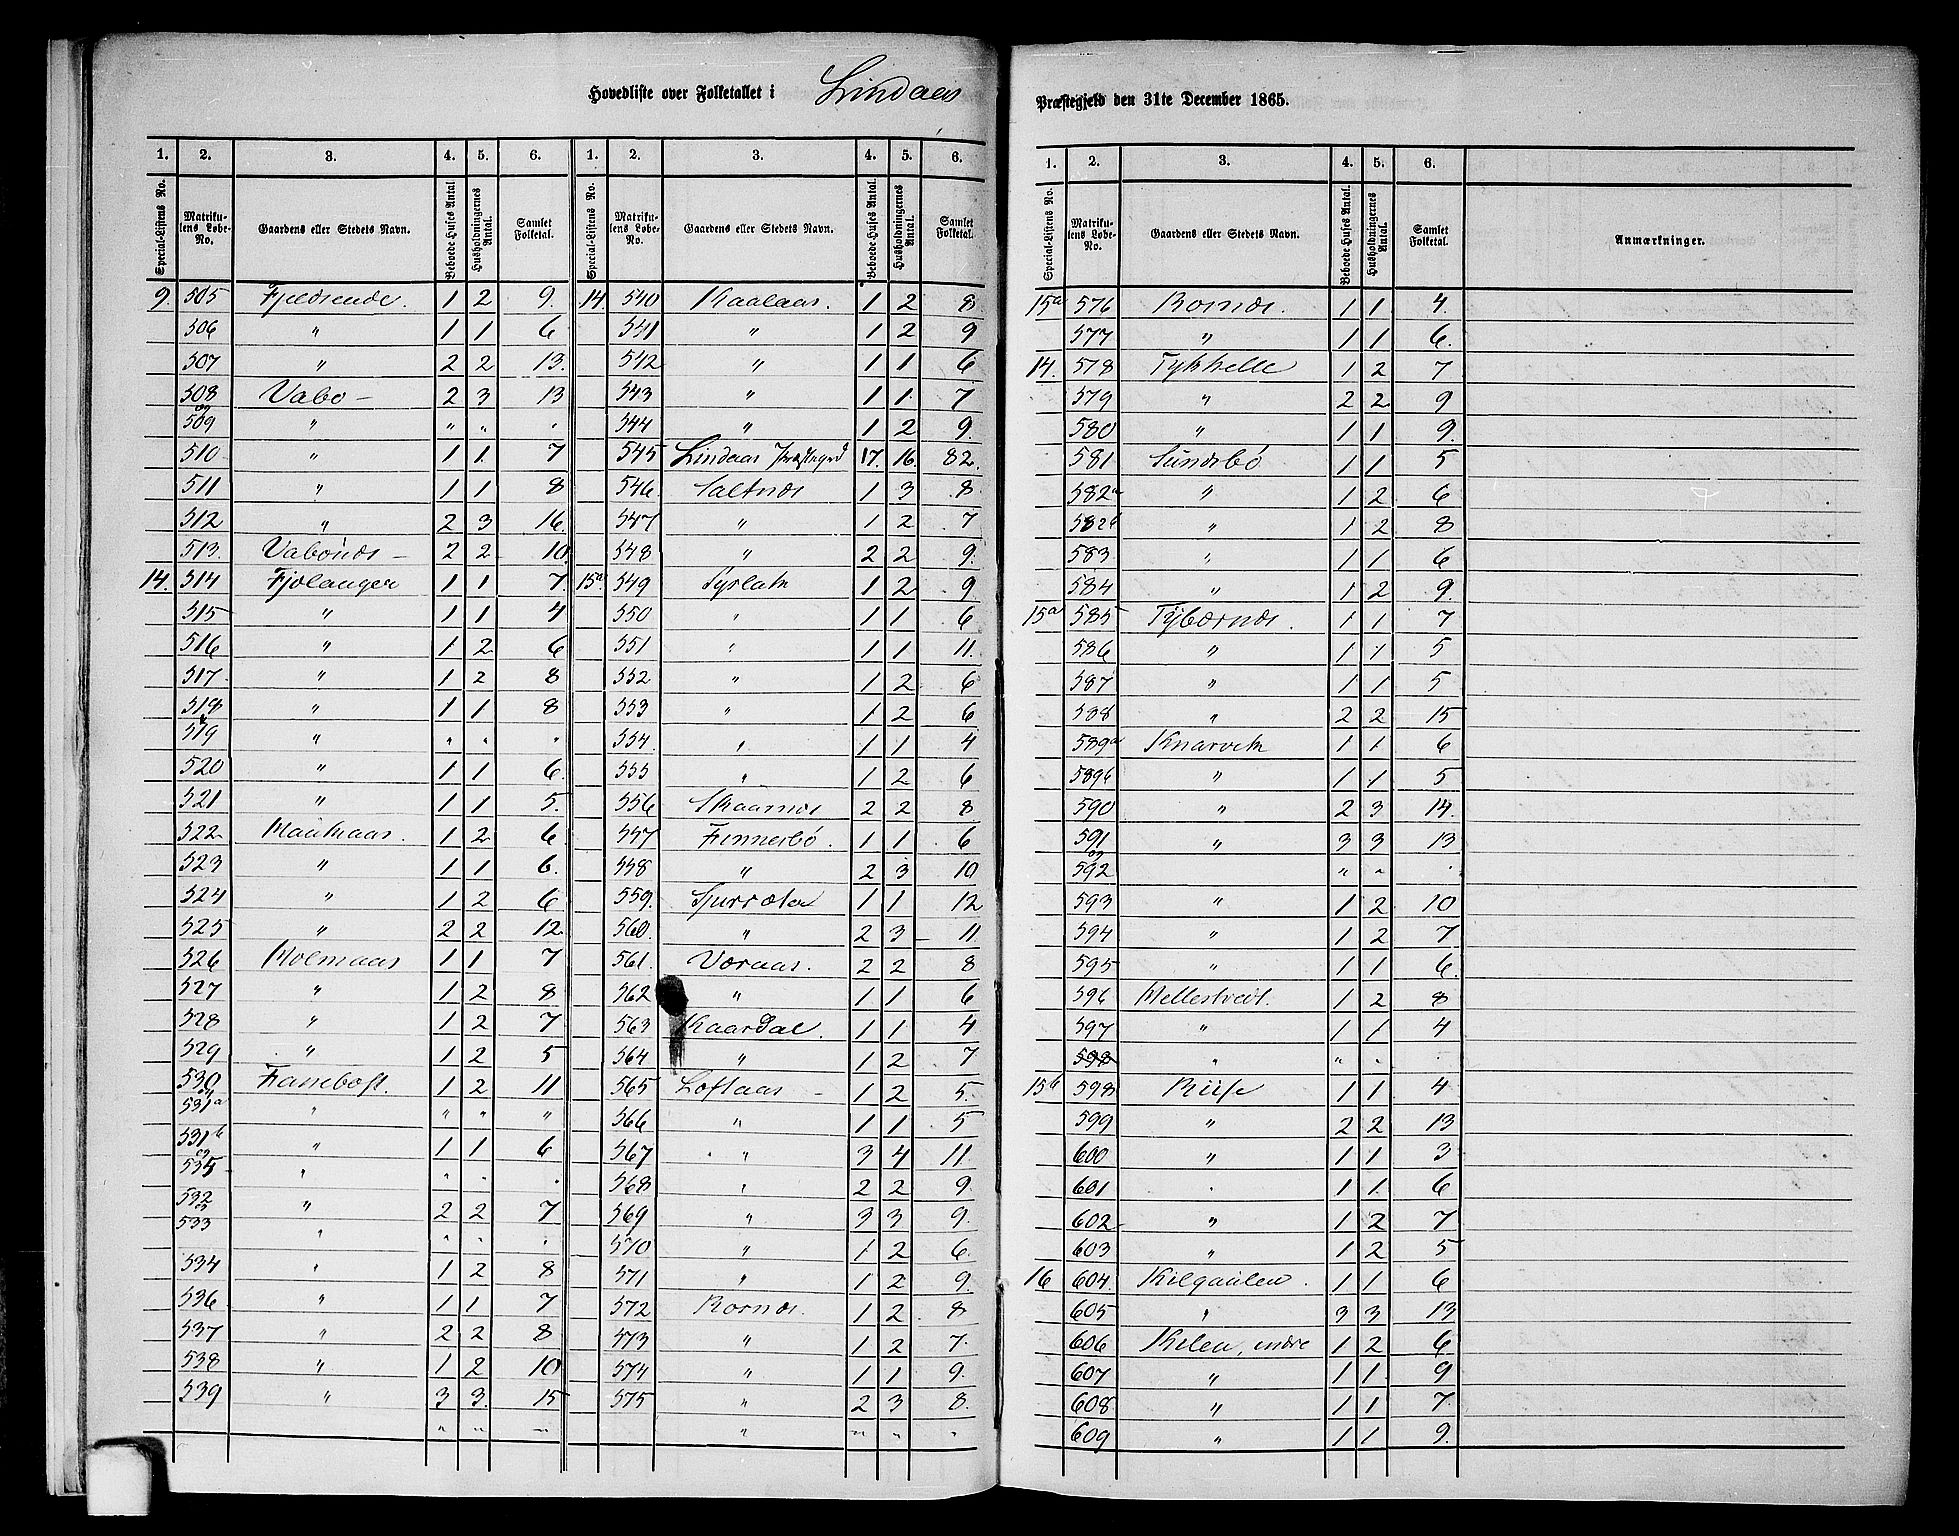 Hovedliste over Folketallet i Lindaas
1. 2. 3. 4. 5. 6. 1. 2. 3. 4. 5. 6.
Special-Listens No. Matrikulens Løbe-No. Gaardens eller Stedets Navn. Beboede Huses Antal Husholdningernes Antal. Samlet Folketal. Special-Listens No. Matrikulens Løbe-No. Gaardens eller Stedets Navn. Beboede Huses Antal. Husholdningernes Antal. Samlet Folketal.
9. 505 Fjeldsende. 1 2 9. 14. 540 Kaalaas. 1 2 8
506 " 1 1 6 541 " 1 2 9
507 " 2 2 13. 542 " 1 1 6
508 Vabø – 2 3 13 543 " 1 1. 7
og 509 " " " " 544 " 1 2 9.
510 " 1 1. 7 545 Lindaas Præstegrd 17. 16. 82.
511 " 1 1 8 546. Saltnæs 1 3 8.
512 " 2 3 16. 547 " 1 2 7
513. Vabønæs – 2 2 10. 548 " 2 2 9.
14. 514 Fjolanger 1 1 7. 15a 549 Syslak 1 2 9
515 " 1 1 4 550 " 1 1 6
516 " 1 2 6 551 " 1 1 11.
517. " 1 2 8 552 " 1 2 6
518 " 1 1 8 553 " 1 2 6
& 519 " " " " 554. " 1 1 4
520 " 1 1 6. 555 " 1 2 6
521 " 1 1 5. 556 Skaarnæs 2 2 8
522 Haukaas. 1 2 6. 557 Fennerbø. 1 1 6
523 " 1 1 6. 558 " 2 3 10
524 " 1 2 6 559. 1 1 12
525 " 2 2 12. 560. " 2 3 11
526 Holmaas 1 1 7 561. Voraas. 2 2 8
527 " 1 2 8 562 " 1 1 6
528 " 1 2 7 563 Kaardal. 1 1 4
529 " 1 2 5 564 " 1 2 7
530 Fannebost. 1 2 11 565 Loftaas – 1 2 5.
531a " " " " 566 " 1 1 5
531b " 1 1 6 567 " 3 4 11.
og 535 " " " " 568 " 2 2 9.
532 " 2 2 7 569 " 3 3 9.
533 " " " " 570 " 1 2 6.
534 " 1 2 8 571 " 1 2 9.
536 " 1 1 7 572 Rornæs. 1 2 8
537 " 2 2 8 573 " 1 2 7.
538 " 1 2 10 574 " 1 1 9.
539 " 3 3. 15 575 " 2 3 8.
" " " " " " "
Præstegjeld den 31te December 1865.
1. 2. 3. 4. 5. 6.
Special-Listens No. Matrikulens Løbe-No. Gaardens eller Stedets Navn. Beboede Huses Antal. Husholdningernes Antal. Samlet Folketal. Anmærkninger.
15a 576 Rornæs. 1 1 4.
577 " 1 1 6.
14. 578 Tykhelle 1 2 7
579 " 2 2 9
580 " 1 1 9.
581 Sundsbø 1 1 5
582a " 1 2 6
582b " 1 2 8
583 " 1 1 6
584 " 1 2 9.
15a 585 Tybærnæs. 1 1 7
586 " 1 1 5
587 " 1 1 5
588 " 2 2 15
589a Knarvik 1 1 6
589b " 1 1 5
590 " 2 3 14.
591 " 3 3 13
og 592 " " "
593 " 1 2 10
594 " 1 2 7
595 " 1 1 6.
596 Hellestvedt. 1 2 8
597 " 1 1 4
598 " " " "
15b 598 Riise 1 1 4
599 " 2 2 13
600 " 1 1 3
601 " 1 1 6
602 " 1 2 7
603 " 1 2 5
16 604. Kilgaulen. 1 1 6
605 " 3 3 13
606 Kilen, indre 1 2 6
607 " 1 1. 9
608 " 1 1 7.
609 " 1 1 9.